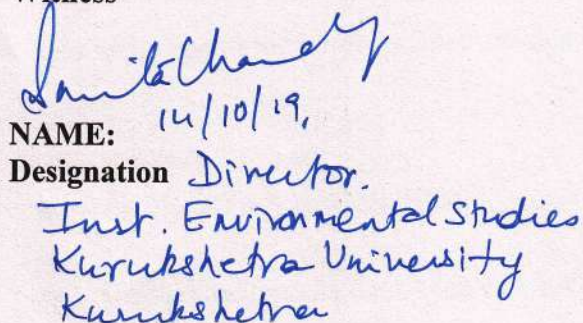 Witness
14/10/19,
NAME:
Designation Director.
Inst. Environmental Studies
Kurukshetra University
Kurukshetra